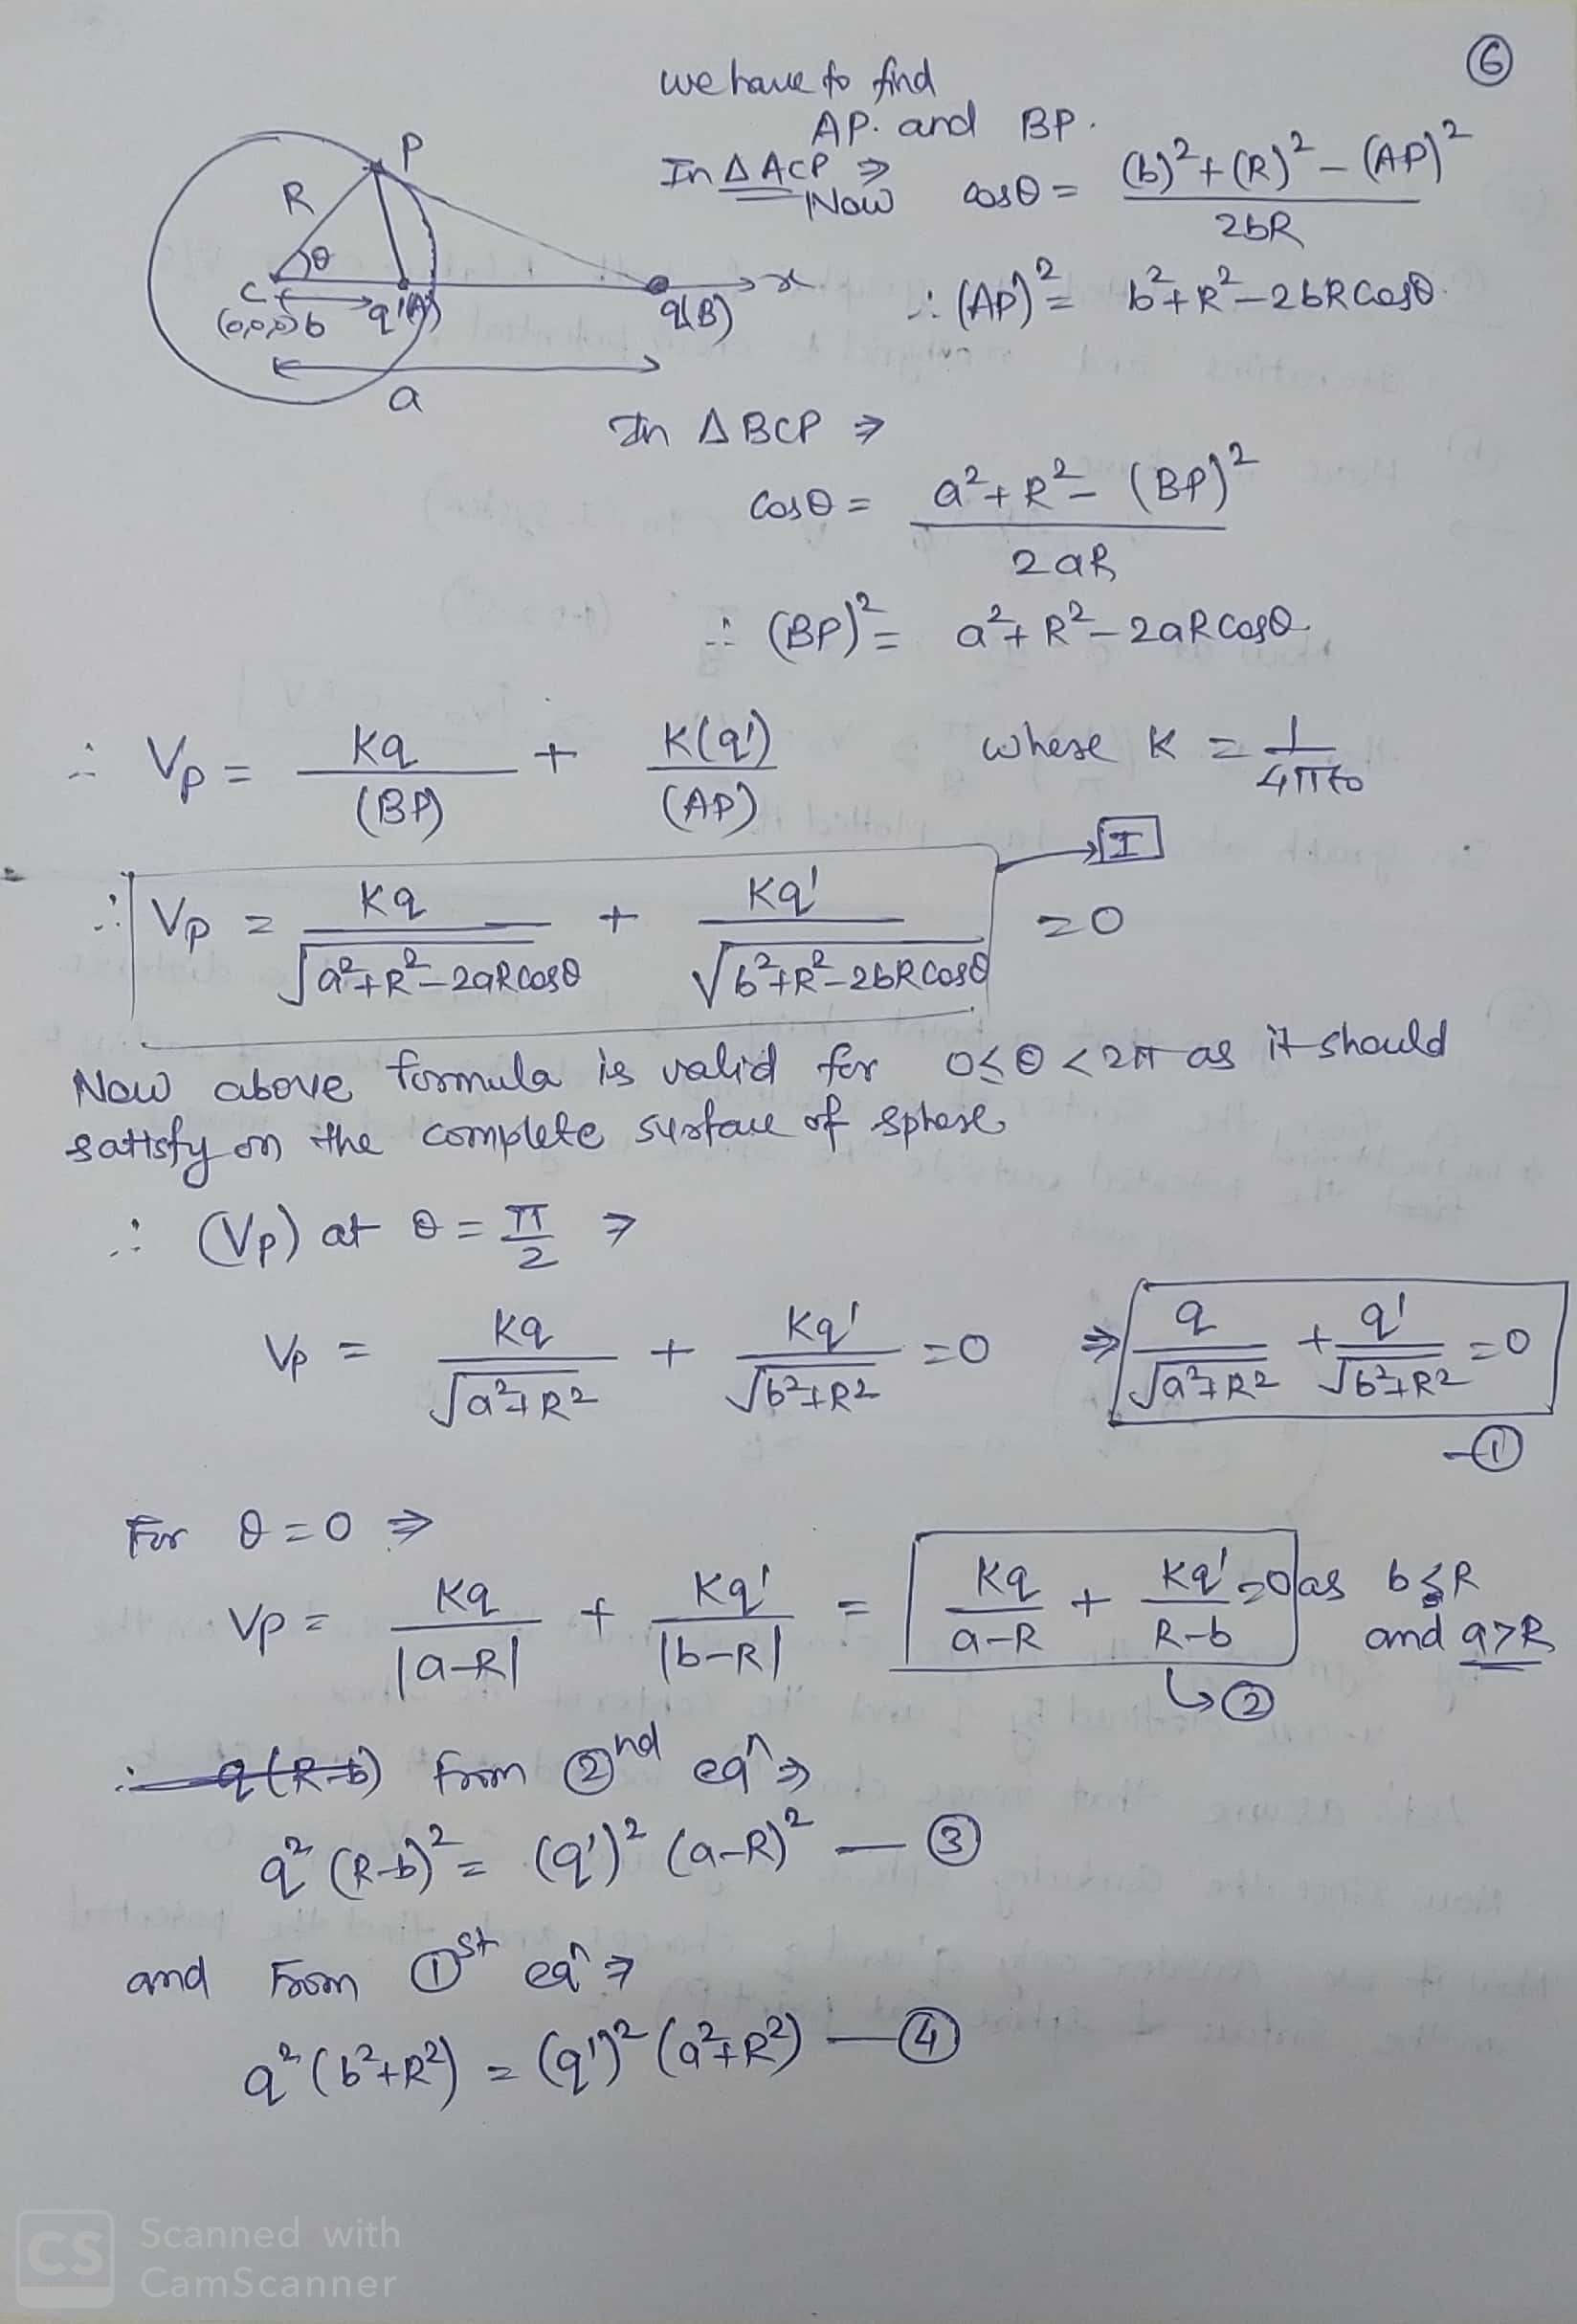 ⑥
we have to find
AP. and BP.
In Δ ACP ⇒
Now cosθ = (b)² + (R)² – (AP)² / 2bR
∴ (AP)² = b² + R² – 2bR cosθ
P
R
θ
C
(0,0,0) b q'(A) q(B) x
a
In Δ BCP ⇒
cosθ = a² + R² – (BP)² / 2aR
∴ (BP)² = a² + R² – 2aR cosθ
∴ Vp = Kq / (BP) + K(q') / (AP) where K = 1 / 4πε₀
∴ Vp = Kq / √a² + R² – 2aR cosθ + Kq' / √b² + R² – 2bR cosθ = 0 → I
Now above formula is valid for 0 ≤ θ < 2π as it should
satisfy on the complete surface of sphere
∴ (Vp) at θ = π / 2 ⇒
Vp = Kq / √a² + R² + Kq' / √b² + R² = 0 ⇒ q / √a² + R² + q' / √b² + R² = 0
— ①
For θ = 0 ⇒
Vp = Kq / |a – R| + Kq' / |b – R| = Kq / a – R + Kq' / R – b = 0 as b ≤ R
and a > R
↳ ②
∴ q(R – b) from ②nd eqn ⇒
q² (R – b)² = (q')² (a – R)² — ③
and From ①st eqn ⇒
q² (b² + R²) = (q')² (a² + R²) — ④
CS Scanned with
CamScanner